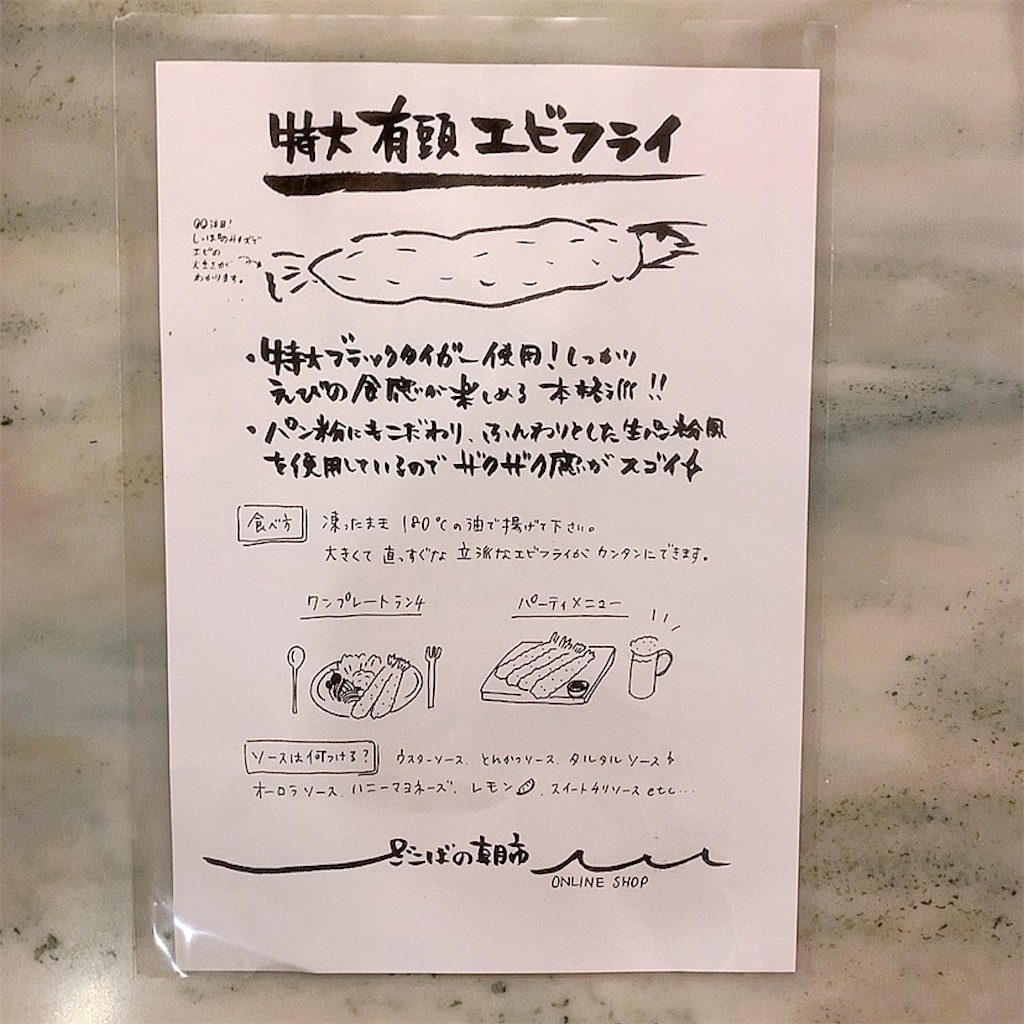 特大 有頭 エビフライ
注目!
しっぽのサイズで
エビの
大きさが
わかります。
・特大ブラックタイガー使用!しっかり
えびの食感が楽しめる 本格派!!
・パン粉にもこだわり、ふんわりとした生パン粉風
を使用しているので ザクザク感がスゴイ
食べ方 凍ったまま 180℃の油で揚げて下さい。
大きくて 真っすぐな 立派なエビフライが カンタンにできます。
ワンプレートランチ
パーティメニュー
ソースは何つける? ウスターソース、とんかつソース、タルタルソース
オーロラソース、ハニーマヨネーズ、レモン、スイートチリソース etc…
ざこばの朝市
ONLINE SHOP